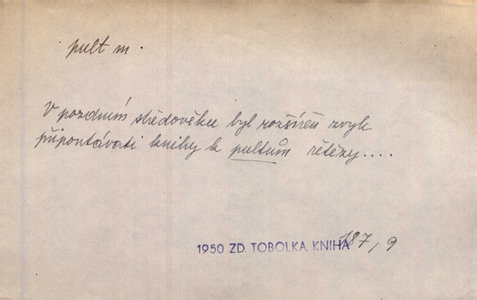 pult m.
V pozdním středověku byl rozšířen zvyk
připoutávati knihy k pultům řetězy....
1950 ZD. TOBOLKA, KNIHA 187, 9